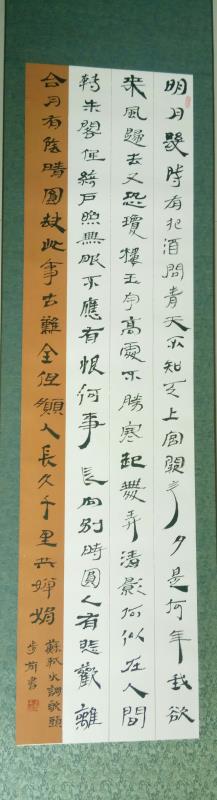 明月幾時有把酒問青天不知天上宮闕今夕是何年我欲
乘風歸去又恐瓊樓玉宇高處不勝寒起舞弄清影何似在人間
轉朱閣低綺戶照無眠不應有恨何事長向別時圓人有悲歡離
合月有陰晴圓缺此事古難全但願人長久千里共嬋娟
蘇軾水調歌頭
步書